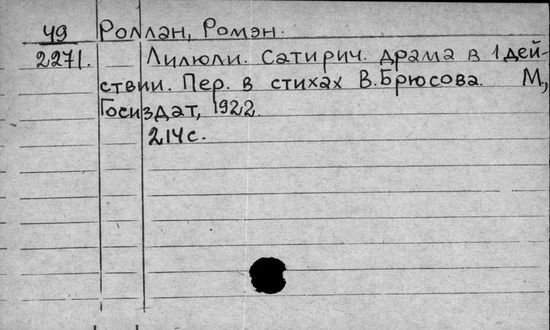 49 Роллан, Ромэн.
2271. Лилюли. Сатирич. драма в 1 дей-
ствии. Пер. в стихах В.Брюсова. М.,
Госиздат, 1922.
214с.